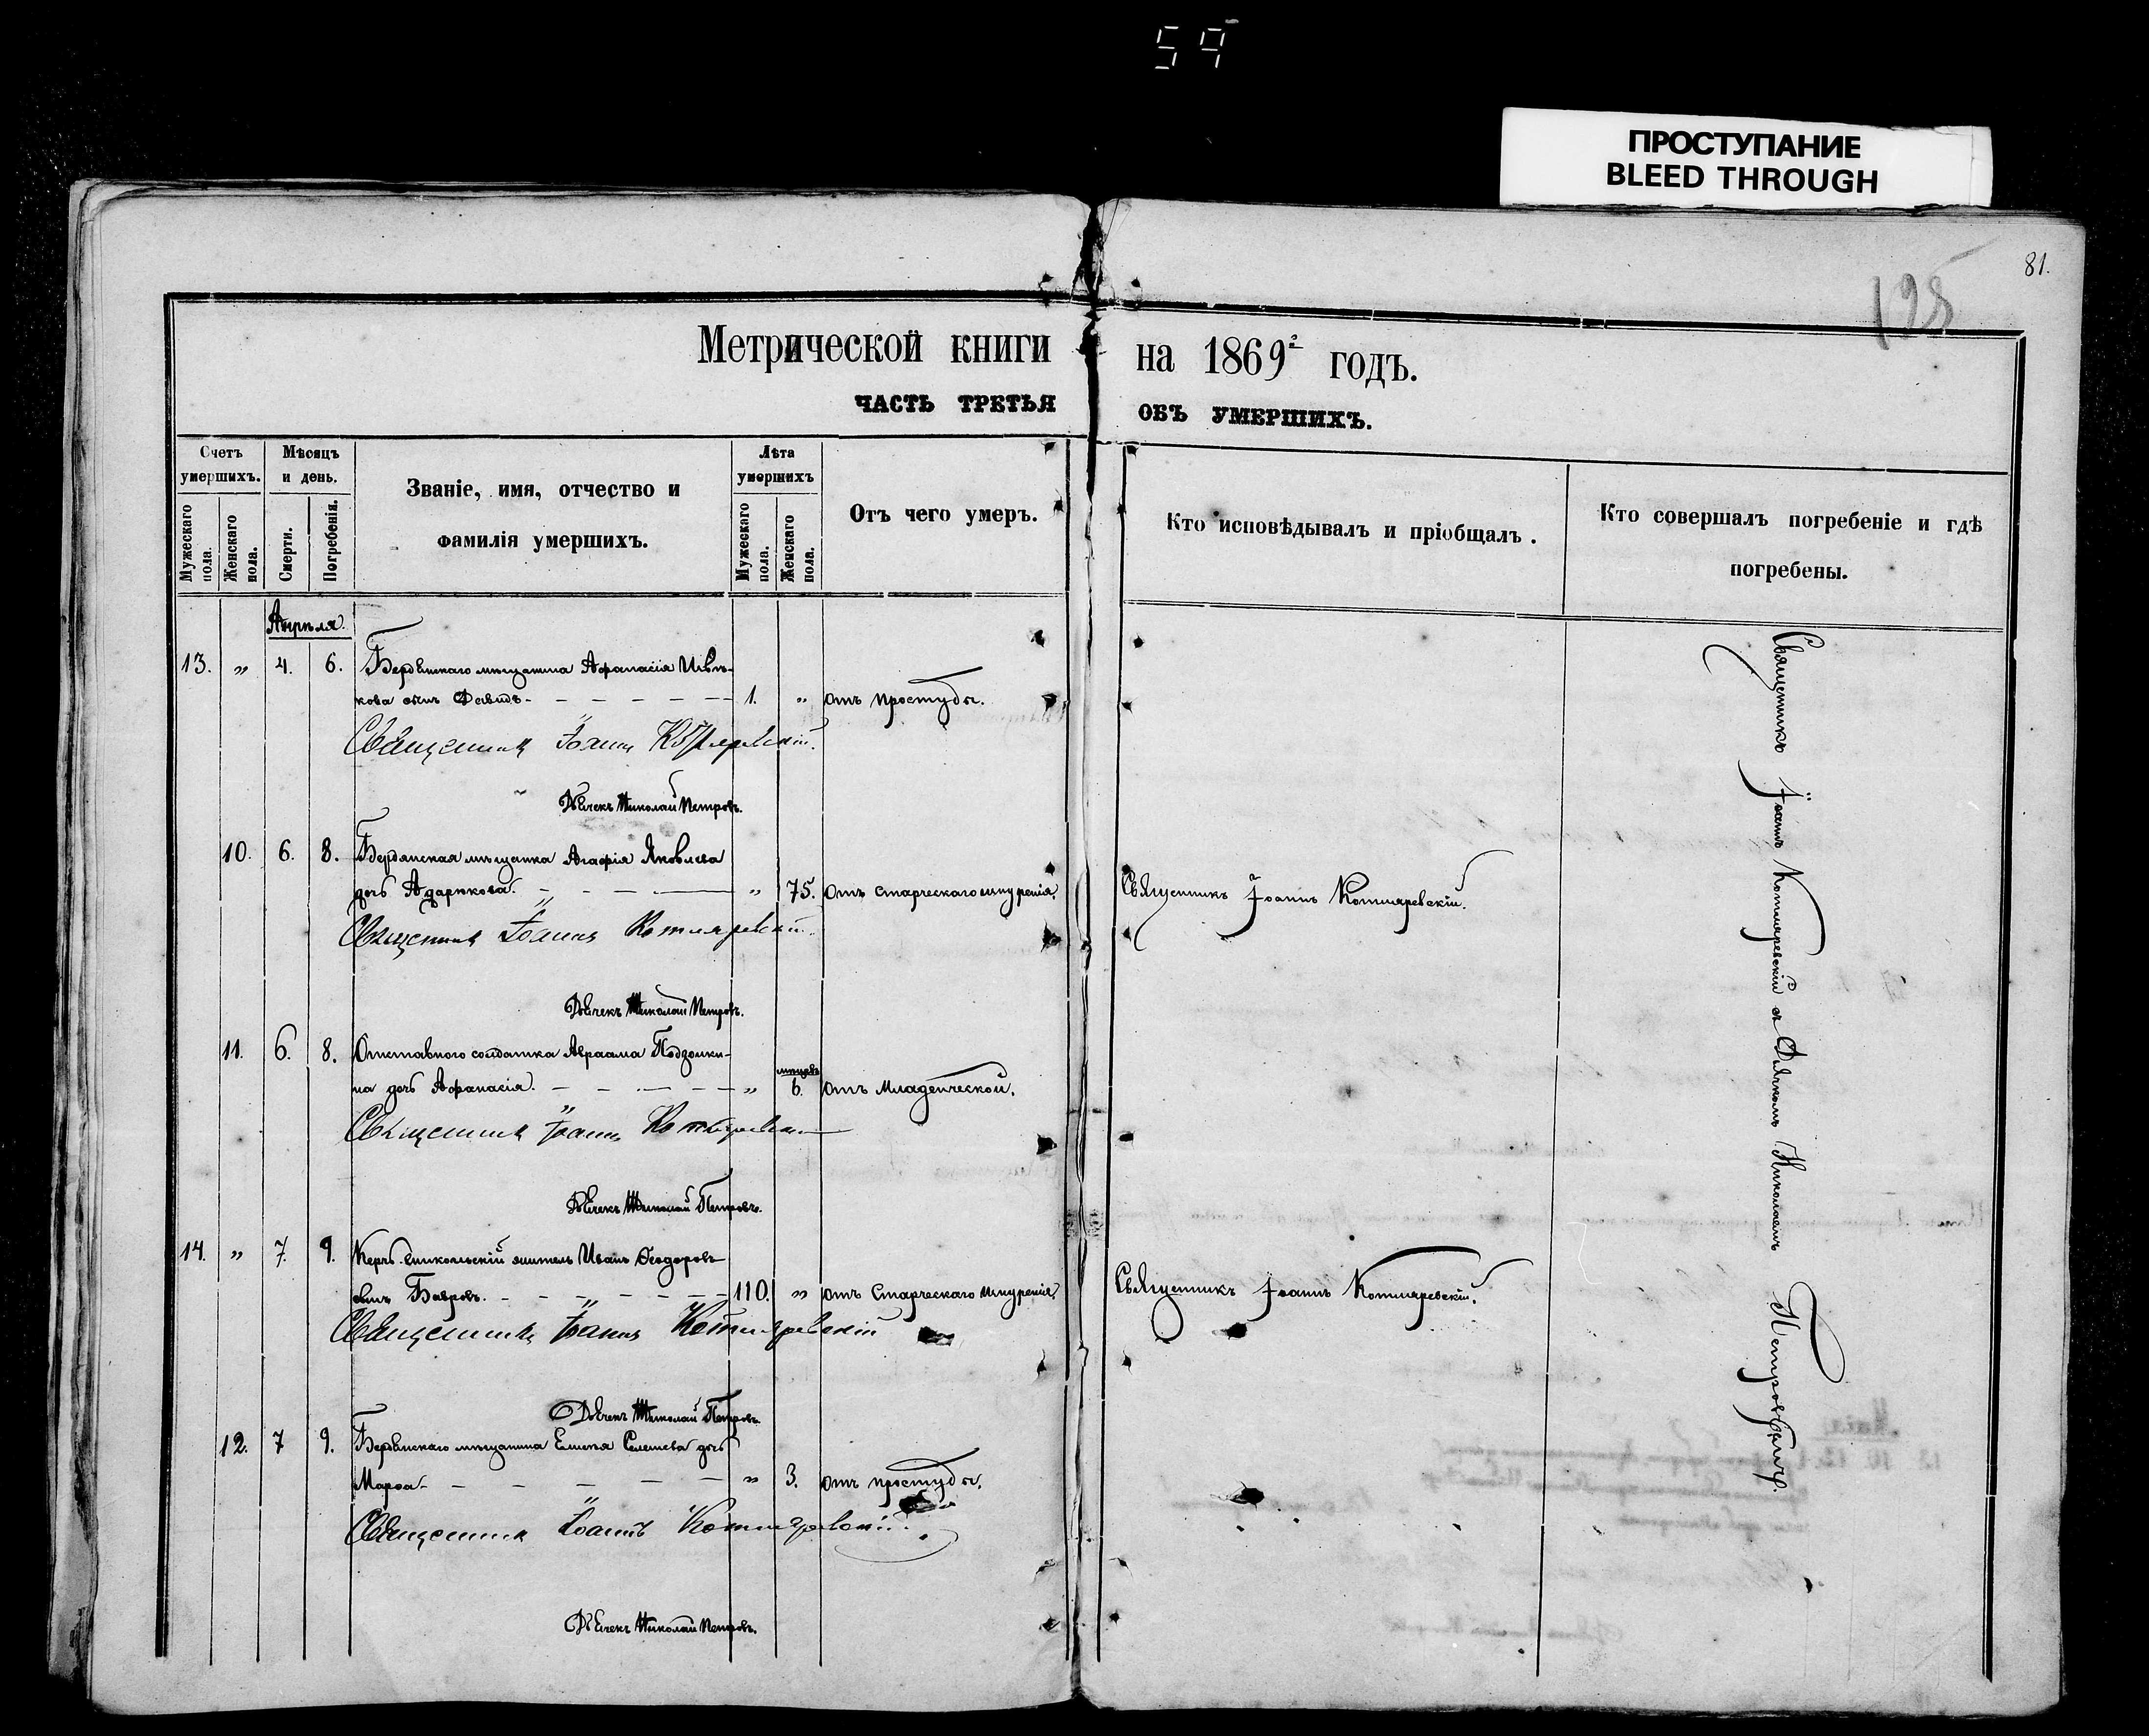 59
ПРОСТУПАНИЕ
BLEED THROUGH
81.
198
Метрической книги на 1869г годъ.
ЧАСТЬ ТРЕТЬЯ ОБЪ УМЕРШИХЪ.
Счетъ умершихъ.
Мужескаго пола.
Женскаго пола.
Мѣсяцъ и день.
Смерти.
Погребенія.
Званіе, имя, отчество и
фамилія умершихъ.
Лѣта умершихъ
Мужескаго пола.
Женскаго пола.
Отъ чего умеръ.
Кто исповѣдывалъ и пріобщалъ.
Кто совершалъ погребеніе и гдѣ
погребены.
Апрѣля.
13. " 4. 6. Бердянскаго мѣщанина Афанасія
кова сынъ Давидъ - 1. " отъ простуды.
Священникъ Іоаннъ Котляревскій.
Дьячекъ Николай Петровъ.
10. 6. 8. Бердянская мѣщанка Агафія Яковлева
дочь - " 75. отъ Старческаго изнуренія. Священникъ Іоаннъ Котляревскій.
Священникъ Іоаннъ Котляревскій.
Дьячекъ Николай Петровъ.
11. 6. 8. Отставнаго солдатка Авраама
на дочь Афанасія. - " мѣсяцевъ 6. отъ Младенческой.
Священникъ Іоаннъ
Дьячекъ Николай Петровъ.
14. " 7. 9. Керчь-Еникольскій житель Иванъ Ѳеодоровъ
сынъ - 110. " отъ Старческаго изнуренія. Священникъ Іоаннъ Котляревскій.
Священникъ Іоаннъ Котляревскій
Дьячекъ Николай Петровъ.
12. 7 9. Бердянскаго мѣщанина дочь
Марѳа - " 3. отъ простуды.
Священникъ Іоаннъ Котляревскій.
Дьячекъ Николай Петровъ.
Священникъ Іоаннъ Котляревскій съ Дьячкомъ Николаемъ